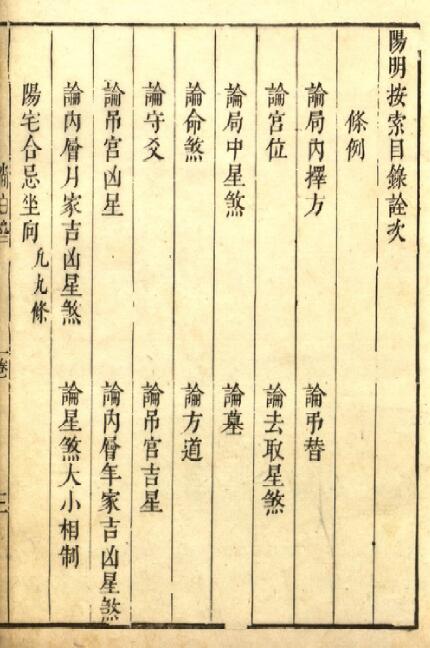 陽明按索目錄詮次
條例
論局內擇方
論弔替
論宮位
論去取星煞
論局中星煞
論墓
論命煞
論方道
論守爻
論吊宮吉星
論吊宮凶星
論內層年家吉凶星煞
論內層月家吉凶星煞
論星煞大小相制
陽宅合忌坐向
凡九條
卷
三